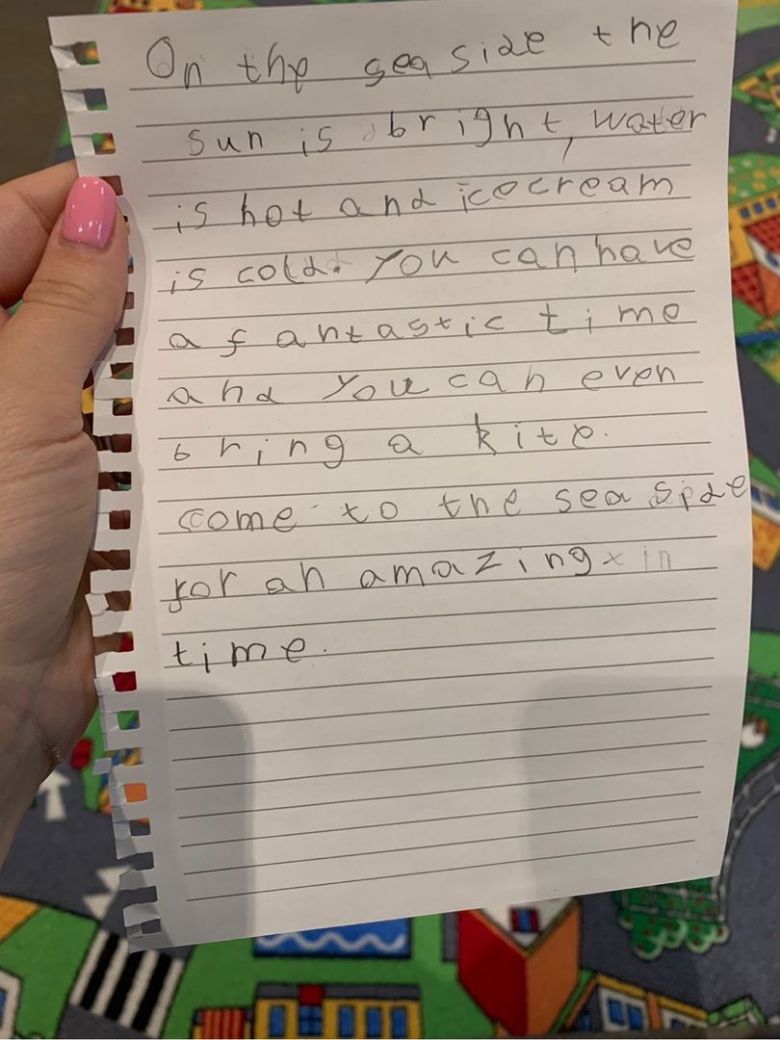 On the sea side the
sun is bright, water
is hot and icecream
is cold. You can have
a fantastic time
and you can even
bring a kite.
come to the sea side
for an amazing x in
time.